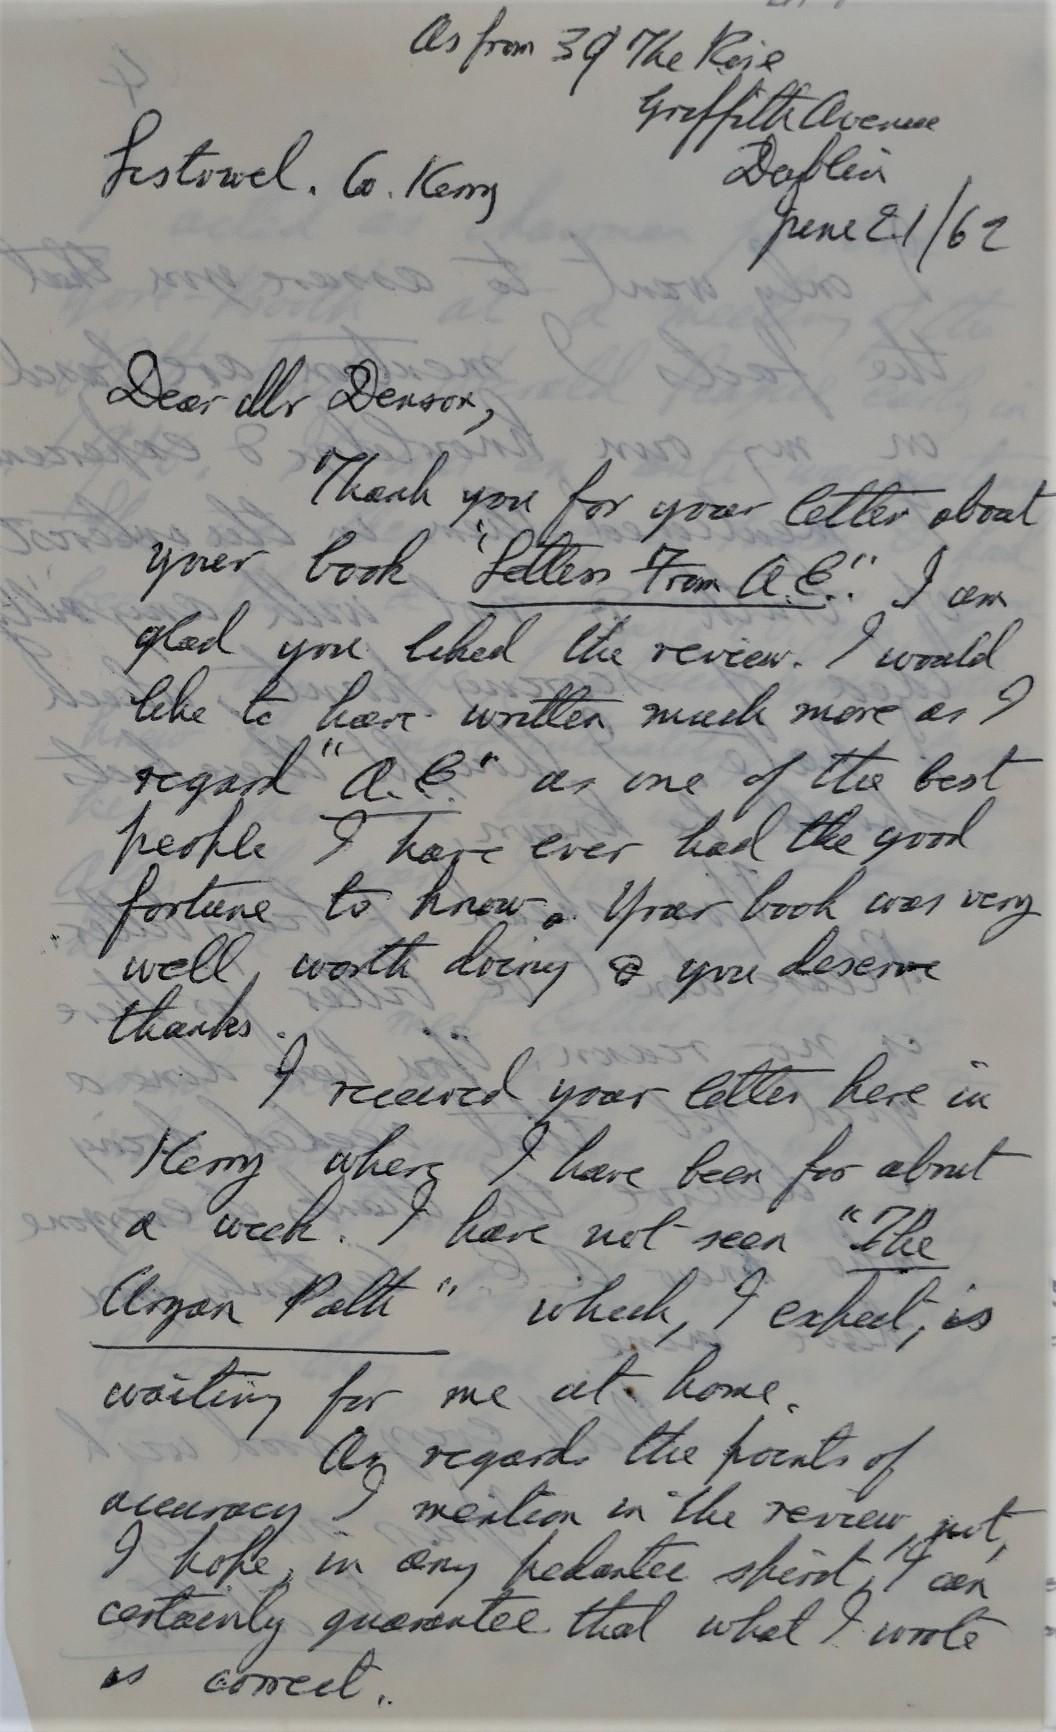 As from 39 The Rise
Griffith Avenue
Dublin
Listowel. Co. Kerry
June 21/62
Dear Mr Denson,
Thank you for your letter about
your book "Letters From A.E.". I am
glad you liked the review. I would
like to have written much more as I
regard "A.E." as one of the best
people I have ever had the good
fortune to know. Your book was very
well worth doing & you deserve
thanks.
I received your letter here in
Kerry where I have been for about
a week. I have not seen "The
Aryan Path" which, I expect, is
waiting for me at home.
As regards the points of
accuracy I mention in the review, not,
I hope, in any pedantic spirit, I can
certainly guarantee that what I wrote
is correct.